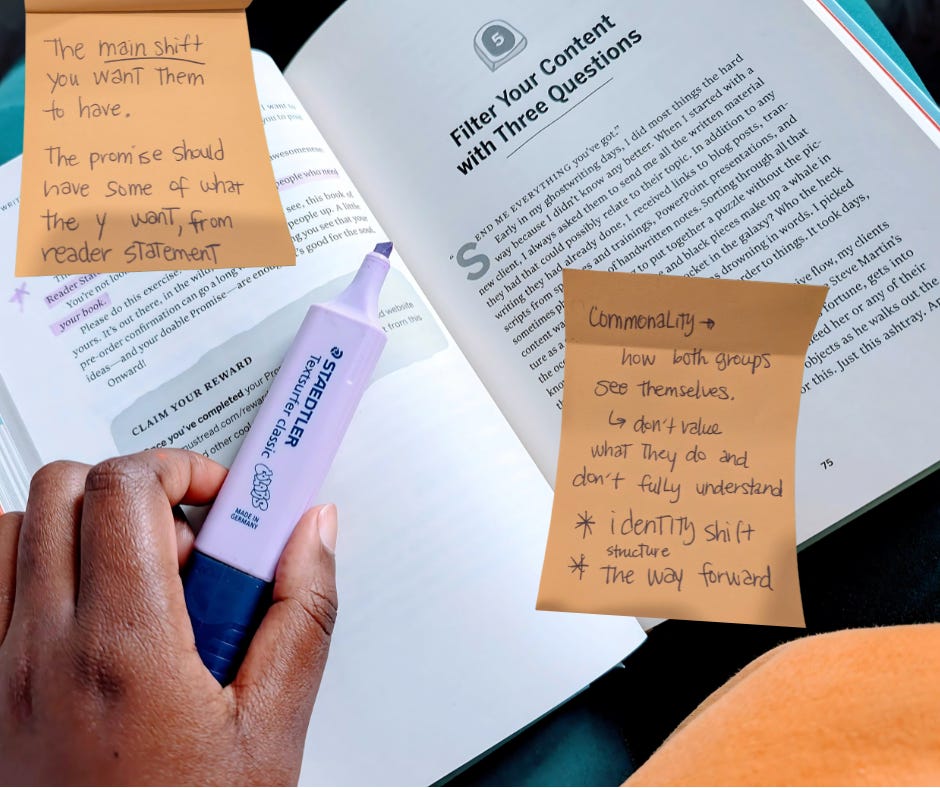 The main shift
you want Them
to have.
The promise should
have some of what
the y want, from
reader STATEMENT
WRIT
I want to
you to pos
awesomeness
people who need
see, this book of
people up. A little
ng you see that your
's good for the soul,
Reader Sta
You're not loo
your book.
Please do this exercise
yours. It's out there, in the wild
pre-order confirmation can go a long
ideas—and your doable Promise—are enough
Onward!
CLAIM YOUR REWARD
Once you've completed your Pro
website
t from this
mustread.com/rewar
d other cool
STAEDTLER
Textsurfer classic
MADE IN
GERMANY
5
Filter Your Content
with Three Questions
"SEND ME EVERYTHING you've got."
Early in my ghostwriting days, I did most things the hard
way because I didn't know any better. When I started with a
new client, I always asked them to send me all the written material
they had that could possibly relate to their topic. In addition to any
writing they had already done, I received links to blog posts, tran-
scripts from sp s and trainings, PowerPoint presentations, and
sometimes of handwritten notes. Sorting through all that
content wa to put together a puzzle without the pic-
ture as a and black pieces make up a whale in
the oc ocket in the galaxy? Who the heck
know s drowning in words. I picked
th order to things. It took days,
ive flow, my clients
Steve Martin's
fortune, gets into
ed her or any of their
objects as he walks out the
r this. Just this ashtray. An
75
Commonality →
how both groups
see themselves.
↳ don't value
what They do and
don't fully understand
* identity shift
structure
* The way forward